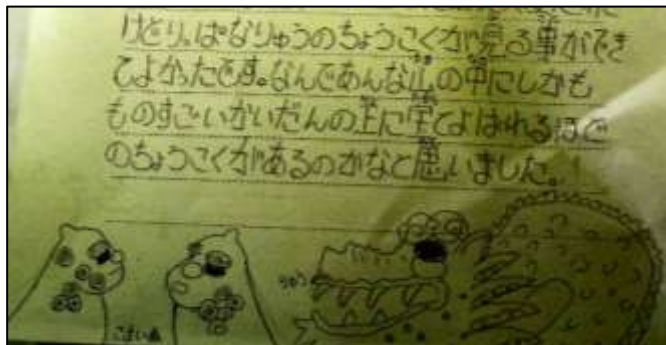 けどりっぱなりゅうのちょうこくが見る事ができ
てよかったです。なんであんな山の中にしかも
ものすごいかいだんの上に宝とよばれるほど
のちょうこくがあるのかなと思いました。
りゅう
こまいぬ